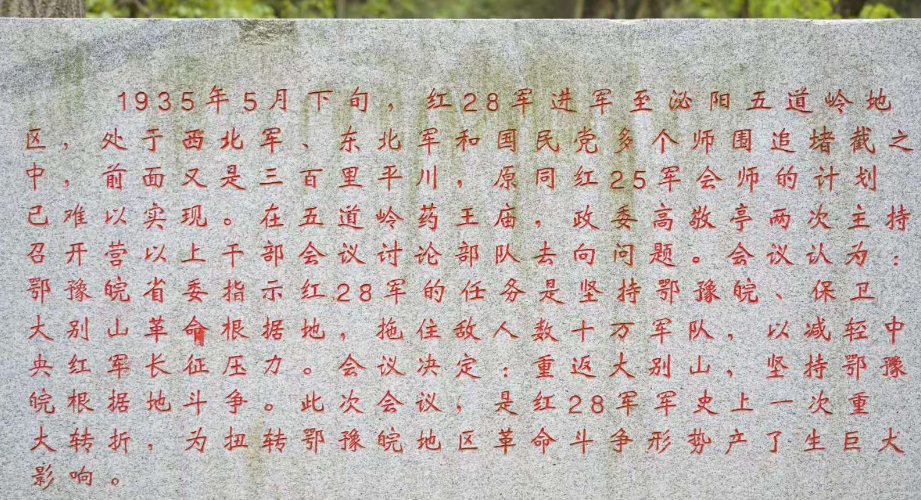 1935年5月下旬，红28军进军至泌阳五道岭地
区，处于西北军、东北军和国民党多个师围追堵截之
中，前面又是三百里平川，原同红25军会师的计划
已难以实现。在五道岭药王庙，政委高敬亭两次主持
召开营以上干部会议讨论部队去向问题。会议认为：
鄂豫皖省委指示红28军的任务是坚持鄂豫皖、保卫
大别山革命根据地，拖住敌人数十万军队，以减轻中
央红军长征压力。会议决定：重返大别山，坚持鄂豫
皖根据地斗争。此次会议，是红28军军史上一次重
大转折，为扭转鄂豫皖地区革命斗争形势产了生巨大
影响。